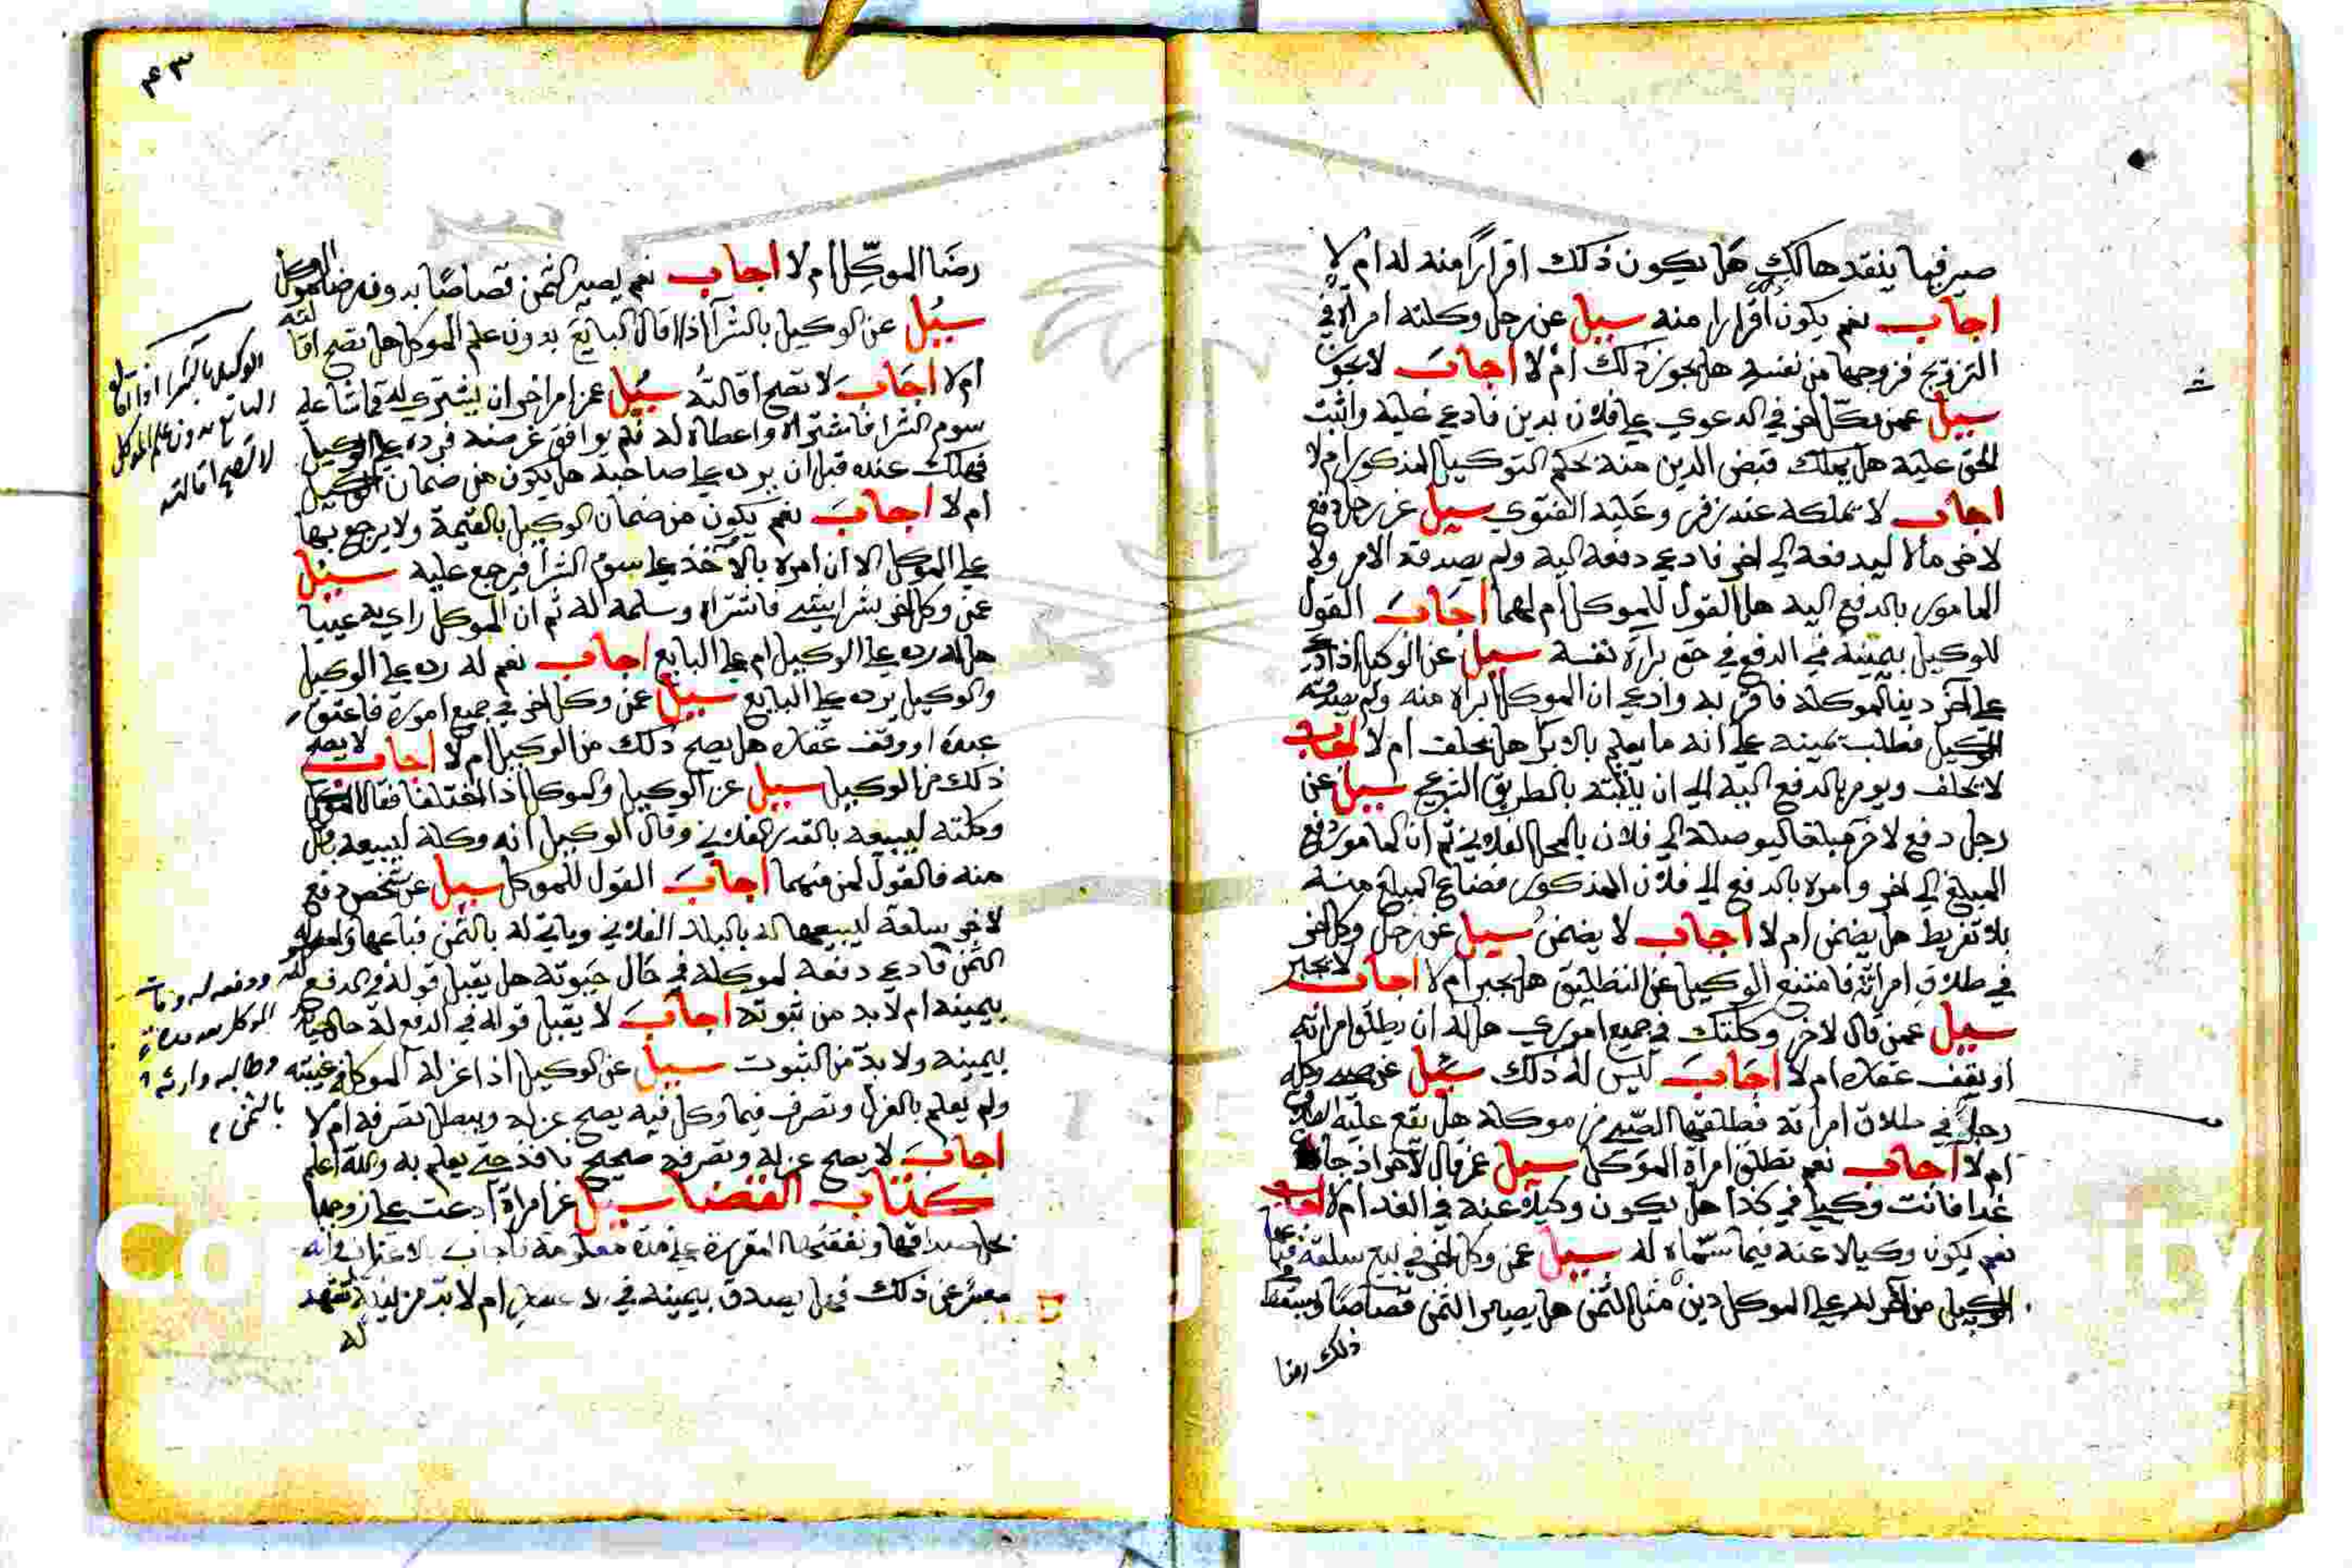 صيرفيا ينقد هالك هل يكون ذلك اقرارًا منه له ام لا
اجاب نعم يكون اقرارا منه سيل عن رجل وكلته امراة في
التزويج فزوجها من نفسه هل يجوز ذلك ام لا اجاب لا يجوز
سيل عمن وكل اخر في الدعوي علي فلان بدين فادعي عليه واثبت
الحق عليه هل يملك قبض الدين منه بحكم التوكيل المذكور ام لا
اجاب لا يملكه عند زفر وعليه الفتوي سيل عن رجل دفع
لاخر مالا ليدفعه الي اخر فادعي دفعه اليه ولم يصدقه الامر ولا
المامور بالدفع اليه هل القول للموكل ام لهما اجاب القول
للوكيل بيمينه في الدفع في حق براة نفسه سيل عن الوكيل اذا ادعي
علي اخر دينا لموكله فاقر به وادعي ان الموكل ابراه منه ولم يصدقه
الوكيل فطلب يمينه علي انه ما يعلم بالابرا هل يحلف ام لا اجاب
لا يحلف ويومر بالدفع اليه الي ان يثبته بالطريق الشرعي سيل عن
رجل دفع لاخر مبلغا ليوصله الي فلان بالمحل الفلاني ثم ان المامور دفع
المبلغ الي اخر وامره بالدفع الي فلان المذكور فضاع المبلغ منه
بلا تفريط هل يضمن ام لا اجاب لا يضمن سيل عن رجل وكل اخر
في طلاق امراته فامتنع الوكيل عن التطليق هل يجبر ام لا اجاب لا يجبر
سيل عمن قال لاخر وكلتك في جميع اموري هل له ان يطلق امراته
او يقف عقاره ام لا اجاب ليس له ذلك سيل عن صبي وكله
رجل في طلاق امراته فطلقها الصبي من موكله هل يقع عليه الطلاق
ام لا اجاب نعم تطلق امراة الموكل سيل عمن قال لاخر اذا جا
غدا فانت وكيلي في كذا هل يكون وكيلا عنه في الغد ام لا اجاب
نعم يكون وكيلا عنه فيما سماه له سيل عمن وكل اخر في بيع سلعة فباعها
الوكيل من اخر له علي الموكل دين مثل الثمن هل يصير الثمن قصاصا ويسقط
ذلك رضا
٤٣
رضا الموكل ام لا اجاب نعم يصير الثمن قصاصًا بدون رضا الموكل
سيل عن الوكيل بالشرا اذا اقال البايع بدون علم الموكل هل تصح اقالته
ام لا اجاب لا تصح اقالته سيل عمن امر اخر ان يشتري له قماشا علي
سوم الشرا فاشتراه واعطاه له فلم يوافق غرضه فرده علي الوكيل
فهلك عنده قبل ان يرده علي صاحبه هل يكون من ضمان الوكيل
ام لا اجاب نعم يكون من ضمان الوكيل بالقيمة ولا يرجع بها
علي الموكل الا ان امره بالاخذ علي سوم الشرا فيرجع عليه سيل
عمن وكل اخر بشرا شي فاشتراه وسلمه له ثم ان الموكل راي به عيبا
هل له رده علي الوكيل ام علي البايع اجاب نعم له رده علي الوكيل
والوكيل يرده علي البايع سيل عمن وكل اخر في جميع اموره فاعتق
عبده او وقف عقاره هل يصح ذلك من الوكيل ام لا اجاب لا يصح
ذلك من الوكيل سيل عن الوكيل والموكل اذا اختلفا فقال الموكل
وكلته ليبيعه بالقدر الفلاني وقال الوكيل انه وكله ليبيعه باقل
منه فالقول لمن منهما اجاب القول للموكل سيل عن شخص دفع
لاخر سلعة ليبيعها له بالبلد الفلاني وياتي له بالثمن فباعها
الثمن فادعي دفعه لموكله في حال حيوته هل يقبل قوله في الدفع
بيمينه ام لا بد من ثبوته اجاب لا يقبل قوله في الدفع له حال حياته
بيمينه ولا بد من الثبوت سيل عن الوكيل اذا عزله الموكل في غيبته
ولم يعلم بالعزل وتصرف فيما وكل فيه يصح عزله ويبطل تصرفه ام لا
اجاب لا يصح عزله وتصرفه صحيح نافذ حتي يعلم به والله اعلم
كتاب القضا سيل عن امراة ادعت علي زوجها
بحال صداقها ونفقتها المقررة علي مدة معلومة فاجاب بالاعتراف انه
معسر عن ذلك فهل يصدق بيمينه في ام لا بد من بينة تشهد
له
الوكيل بالشرا اذا اقال
البايع بدون علم الموكل
لا تصح اقالته
ودفعه له ومات
الموكل بعد مدة
وطالبه وارثه
بالثمن